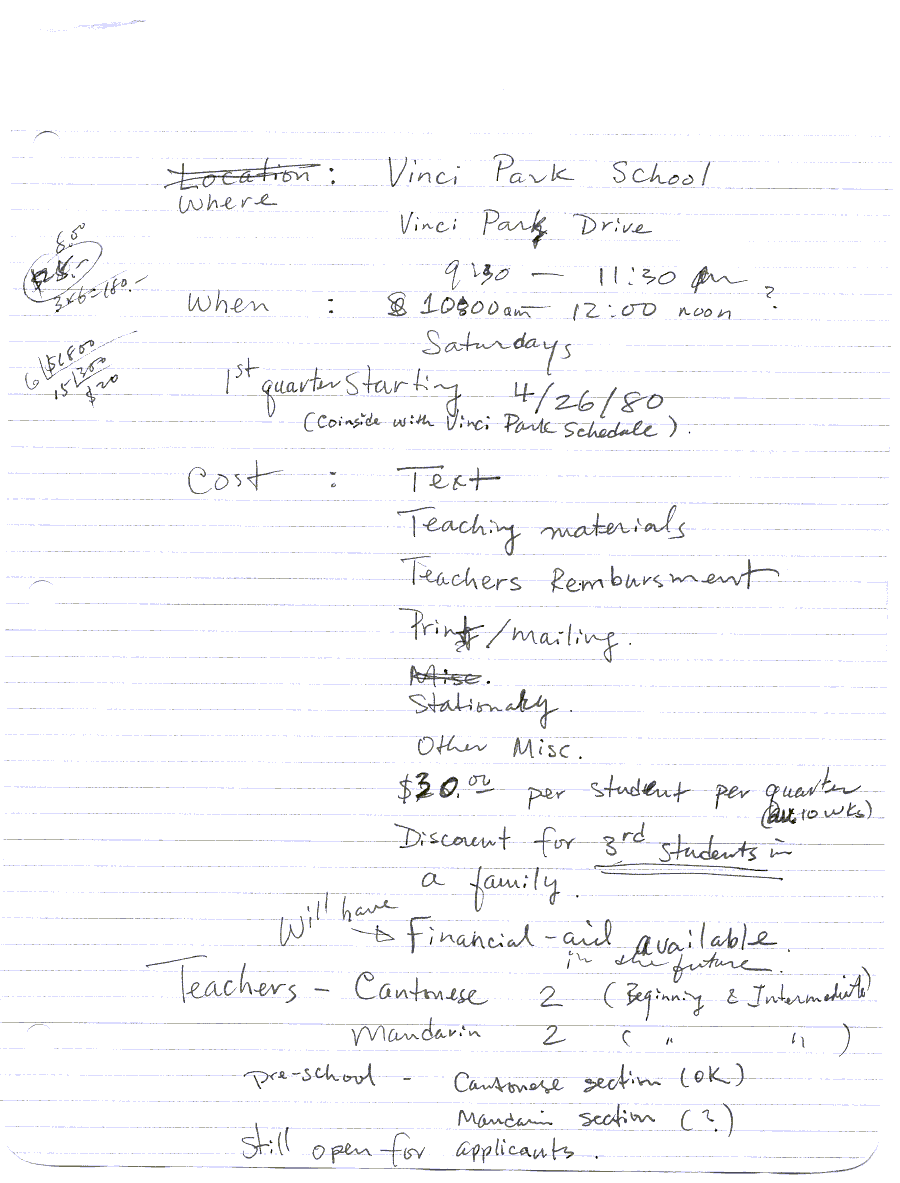 Location : Vinci Park School
Where
Vinci Park Drive
8.00
3x6=180.-
9:30 — 11:30 am
When : 10:00 am 12:00 noon ?
Saturdays
6 $1800
15 300
$20
1st quarter Starting 4/26/80
(Coinside with Vinci Park Schedale).
Cost : Text
Teaching materials
Teachers Rembursment
Print/mailing.
Misc.
Stationary.
Other Misc.
$30.00 per student per quarter
(10 wks)
Discount for 3rd students in
a family.
Will have
Financial-aid available.
in the future.
Teachers - Cantonese 2 (Beginning & Intermediate)
Mandarin 2 ( " " )
pre-school - Cantonese section (OK)
Mandarin section (?)
Still open for applicants.